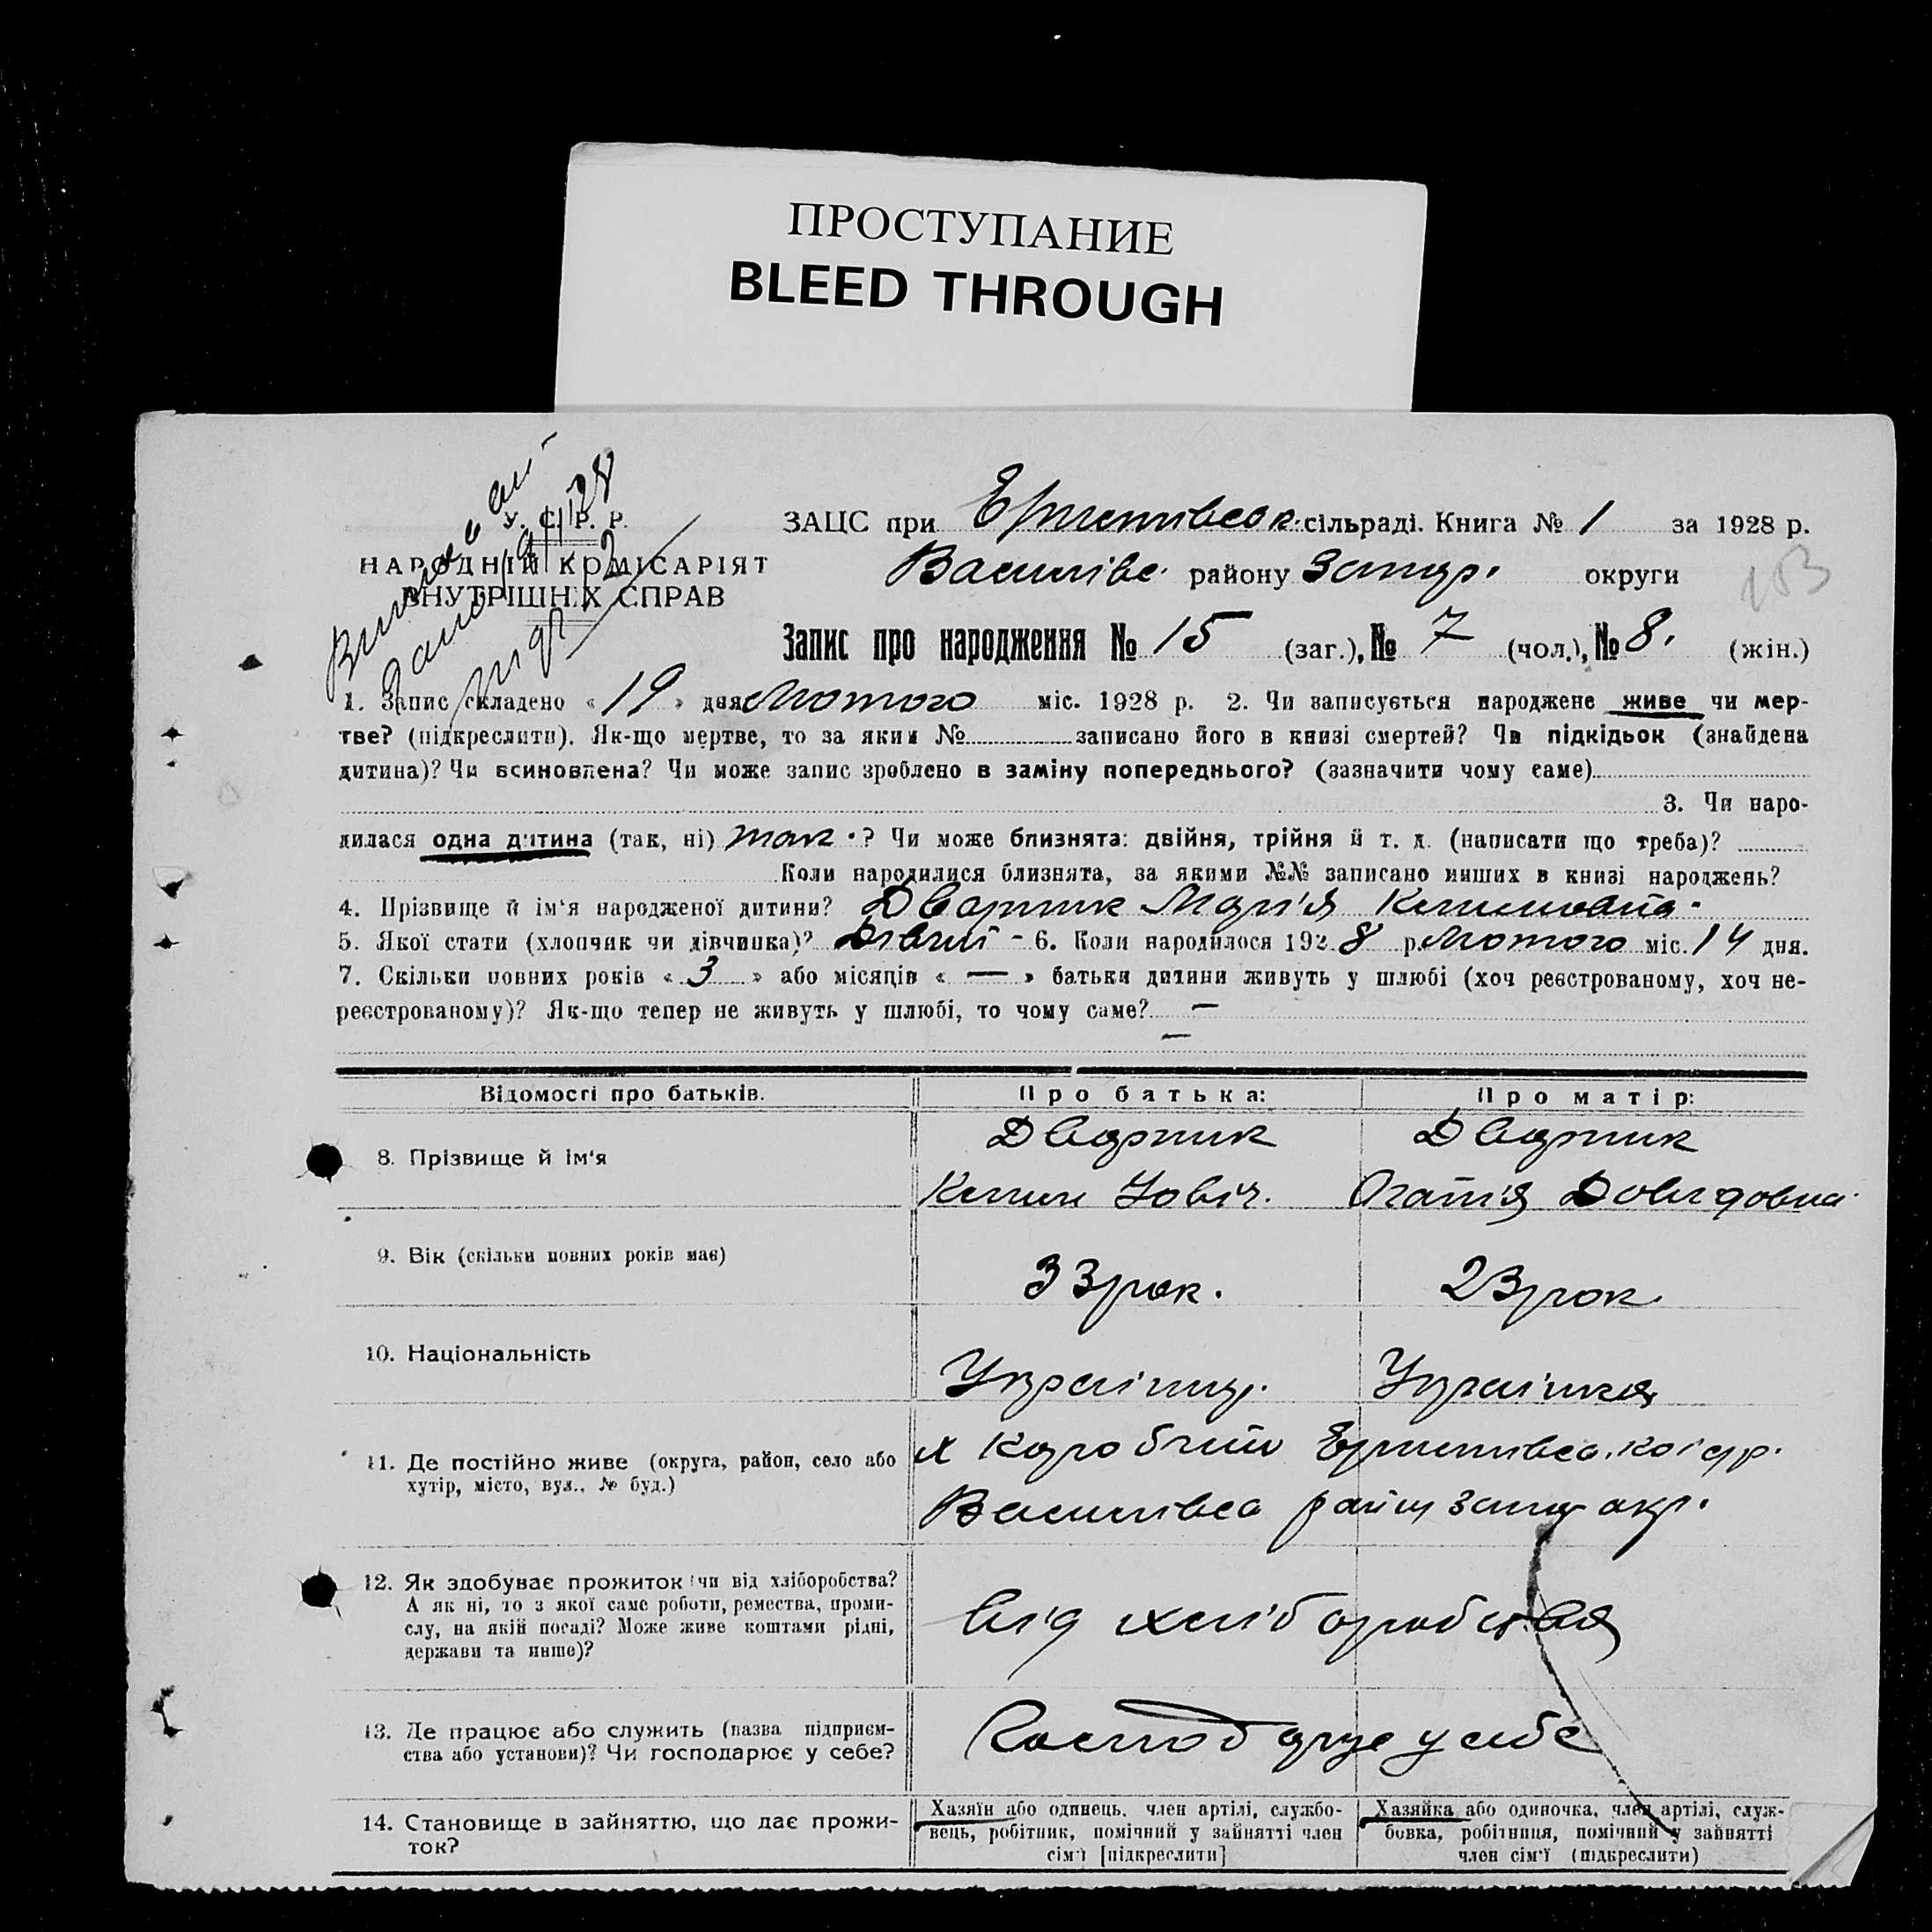 ПРОСТУПАНИЕ
BLEED THROUGH
У. С. Р. Р.
НАРОДНІЙ КОМІСАРІЯТ
ВНУТРІШНІХ СПРАВ
19/II 28
ЗАЦС при сільраді. Книга № 1 за 1928 р.
Василівс. району Запор. округи
103
Запис про народження № 15 (заг.), № 7 (чол.), № 8. (жін.)
1. Запис складено « 19 » дня Лютого міс. 1928 р. 2. Чи записується народжене живе чи мер-
тве? (підкреслити). Як-що мертве, то за яким № записано його в книзі смертей? Чи підкідьок (знайдена
дитина)? Чи всиновлена? Чи може запис зроблено в заміну попереднього? (зазначити чому саме)
3. Чи наро-
дилася одна дитина (так, ні) так ? Чи може близнята: двійня, трійня й т. д. (написати що треба)?
Коли народилися близнята, за якими №№ записано инших в книзі народжень?
4. Прізвище й ім'я народженої дитини? Дворник Марія
5. Якої стати (хлопчик чи дівчинка)? Дівчи - 6. Коли народилося 1928 р. Лютого міс. 14 дня.
7. Скільки повних років « 3 » або місяців « — » батьки дитини живуть у шлюбі (хоч реєстрованому, хоч не-
реєстрованому)? Як-що тепер не живуть у шлюбі, то чому саме? —
—
Відомості про батьків. Про батька: Про матір:
Дворник Дворник
8. Прізвище й ім'я
Давидовна
9. Вік (скільки повних років має) 33 рок. 23 рок
10. Національність Українц. Українка
11. Де постійно живе (округа, район, село або
хутір, місто, вул., № буд.)
Василівсо район Запор окр.
12. Як здобуває прожиток (чи від хліборобства?
А як ні, то з якої саме роботи, ремества, проми-
слу, на якій посаді? Може живе коштами рідні,
держави та инше)?
від хліборобства
13. Де працює або служить (назва підприєм-
ства або установи)? Чи господарює у себе?
Господарує у себе
14. Становище в зайняттю, що дає прожи-
ток?
Хазяїн або одинець, член артілі, службо-
вець, робітник, помічний у зайнятті член
сім'ї [підкреслити]
Хазяйка або одиночка, член артілі, служ-
бовка, робітниця, помічний у зайнятті
член сім'ї (підкреслити)